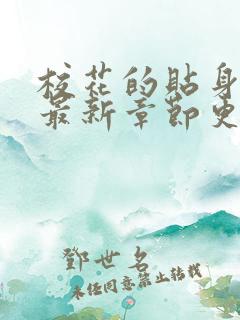 校花的貼身
最新章節更
鄧世名
未经同意禁止转载